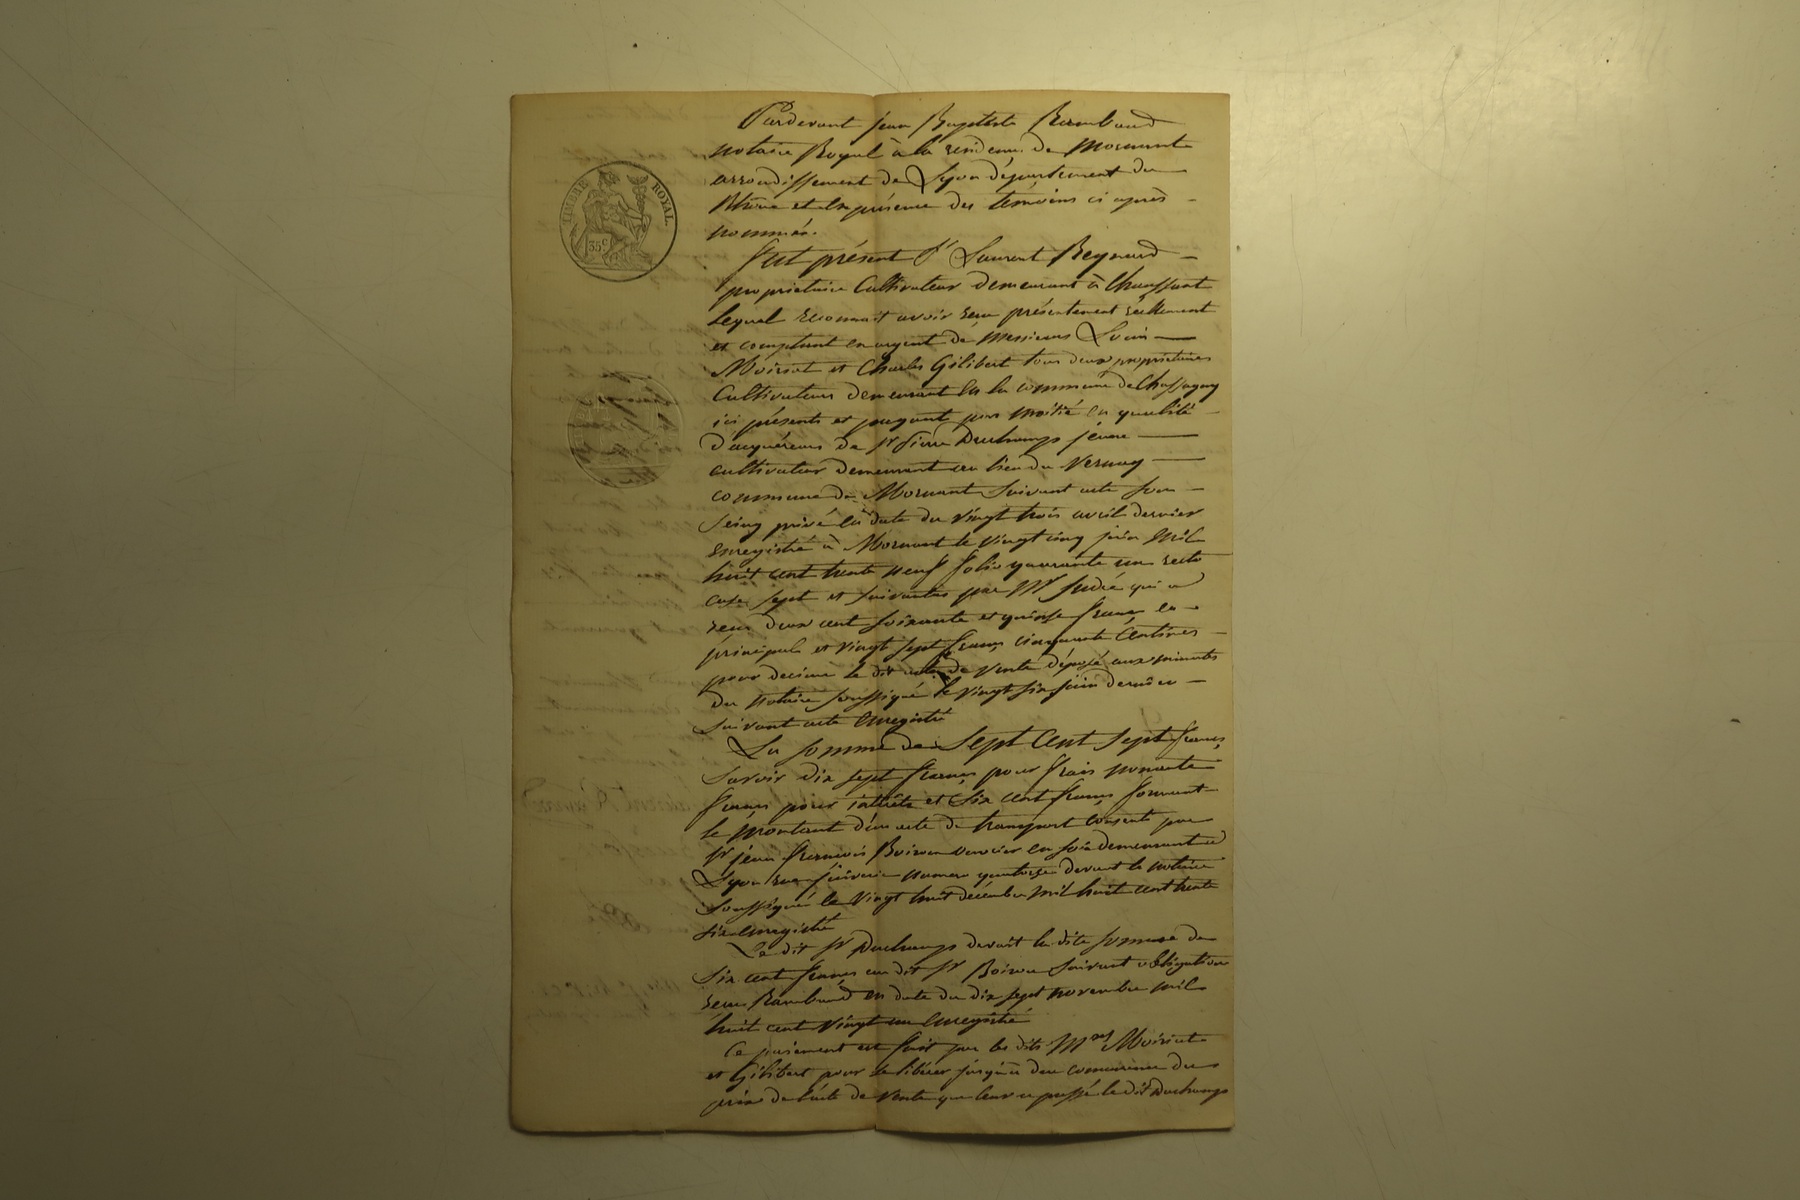 TIMBRE ROYAL
35 c
Pardevant jean Baptiste Rambaud
notaire Royal à la residence de Mornant
arrondissement de Lyon département du
Rhône et en présence des témoins ci après
nommés.
Fut présent Sr Laurent Reynard
propriétaire Cultivateur demeurant à Chaussant
Lequel reconnait avoir reçu présentement réellement
et comptant en argent de Messieurs Louis
Moiriat et Charles Gilibert tous deux propriétaires
Cultivateurs demeurant en la commune de Chassagny
ici présents et payant par moitié en qualité
d'acquéreurs de Sr Pierre Duchamp jeune
cultivateur demeurant au lieu du Vernay
commune de Mornant suivant acte sou
seing privé en date du vingt trois avril dernier
enregistré à Mornant le vingt cinq juin mil
huit cent trente neuf folio quarante un recto
case sept et suivantes par Mr qui a
reçu deux cent soixante et quinze francs en
principal et vingt sept francs cinquante centimes
pour decime le dit acte de vente déposé aux minutes
du notaire soussigné le vingt six juin dernier
suivant acte enregistré
La somme de Sept Cent Sept francs
Savoir dix sept francs pour frais nonante
francs pour intérêts et Six cent francs formant
le montant d'un acte de transport consenti par
Sr jean francois Boiron en soie demeurant à
Lyon rue numero quatorze devant le notaire
soussigné le vingt huit décembre mil huit cent trente
six enregistré
Le dit Sr Duchamp devait la dite somme de
six cent francs au dit Sr Boiron suivant obligation
reçue Rambaud en date du dix sept novembre mil
huit cent vingt un enregistré
Ce paiement est fait par les dits Mrs Moiriat
et Gilibert pour se libérer jusqu'à due concurrence du
prix de l'acte de vente que leur a passé le dit Duchamp